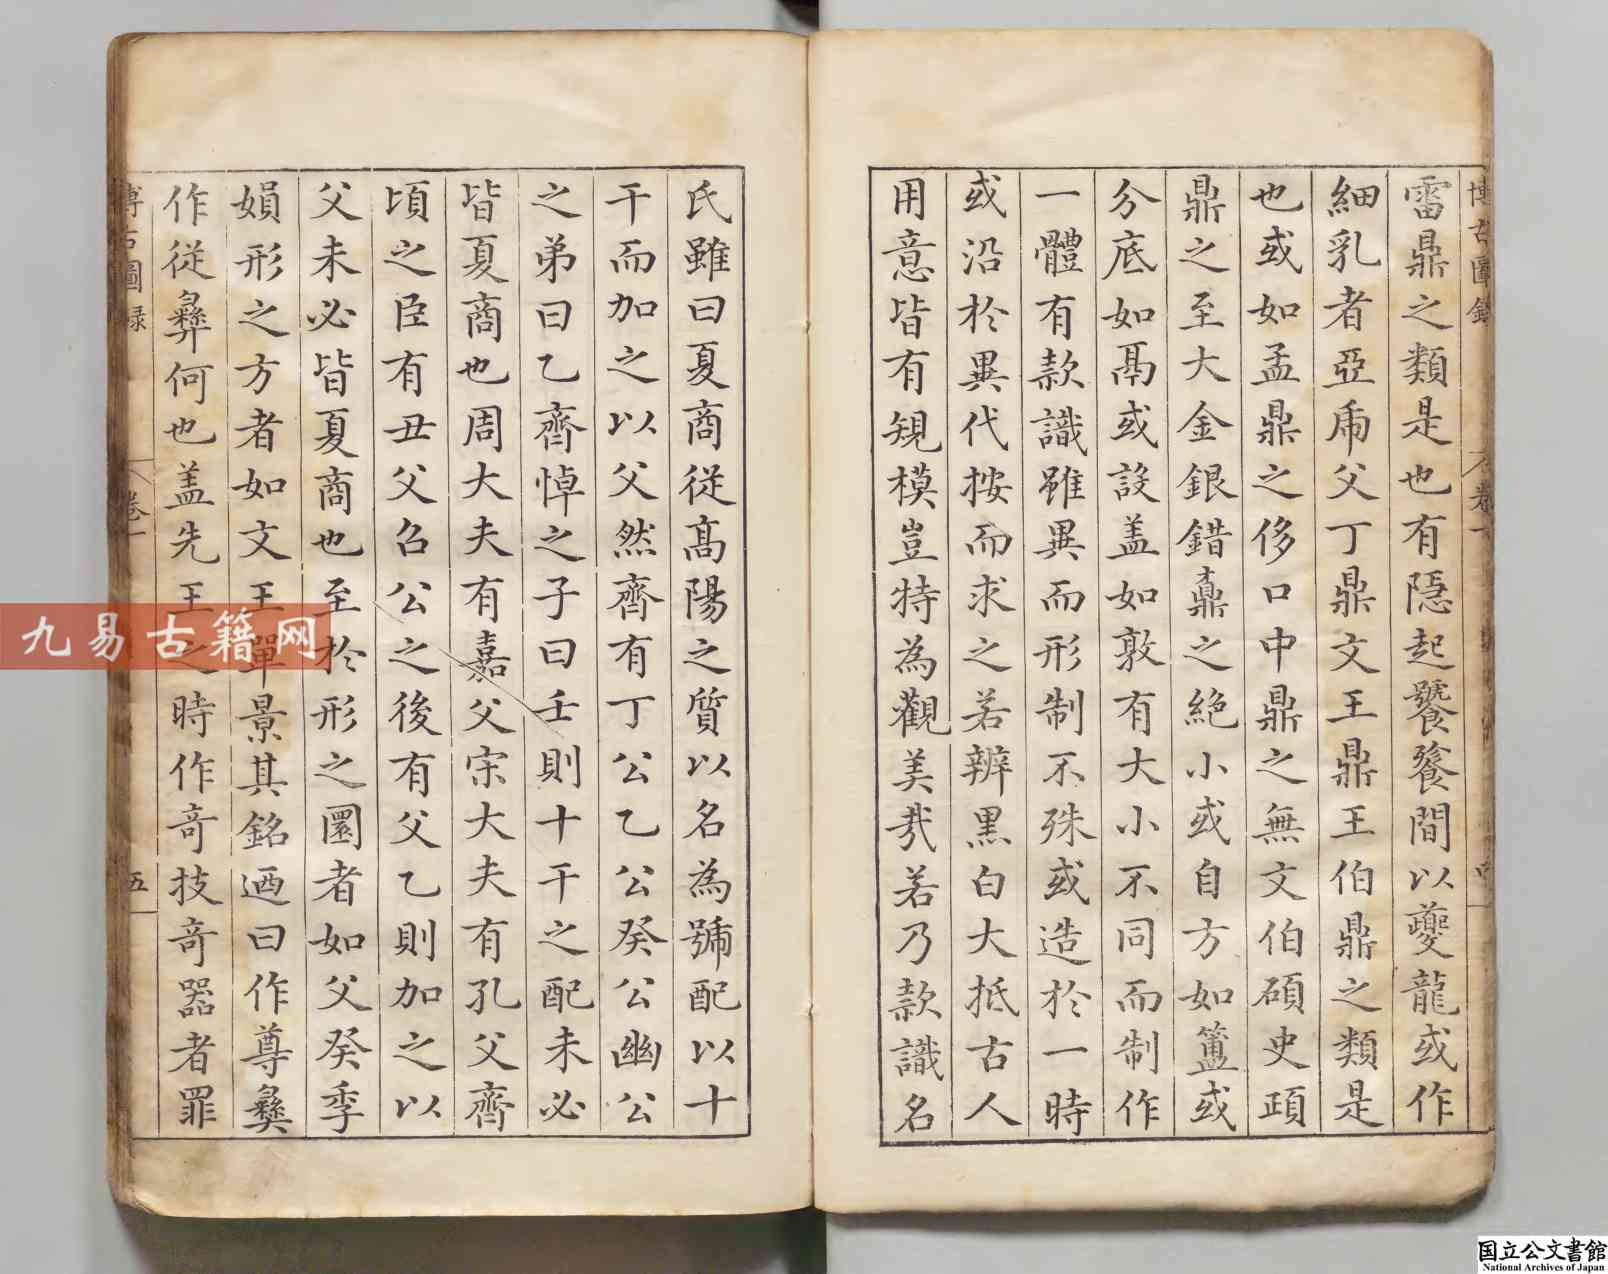 雷鼎之類是也有隠起饕餮間以夔龍或作
細乳者亞乕父丁鼎文王鼎王伯鼎之類是
也或如孟鼎之侈口中鼎之無文伯碩史頙
鼎之至大金銀錯鼒之絶小或自方如簠或
分底如鬲或設盖如敦有大小不同而制作
一體有款識雖異而形制不殊或造於一時
或沿於異代按而求之若辨黒白大抵古人
用意皆有規模豈特為觀美㢤若乃款識名
氏雖曰夏商從髙陽之質以名為號配以十
干而加之以父然齊有丁公乙公癸公幽公
之弟曰乙齊悼之子曰壬則十干之配未必
皆夏商也周大夫有嘉父宋大夫有孔父齊
頃之臣有丑父召公之後有父乙則加之以
父未必皆夏商也至於形之圜者如父癸季
媍形之方者如文王單景其銘迺曰作尊彝
作從彝何也盖先王之時作竒技竒器者罪
卷一
五
九易古籍网
国立公文書館
National Archives of Japan